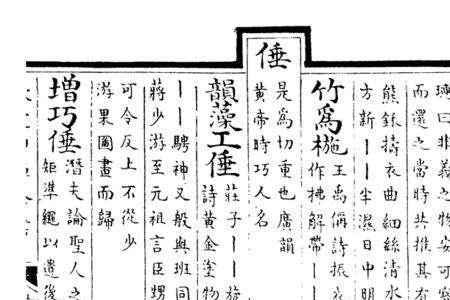 曰非義之物安可
而還之當時共推其有
擣衣曲細絲清水
方新丨丨半濕日中明
竹為椸
王禹偁詩振衣
作拂解帶丨丨
倕
是為切重也廣韻
黃帝時巧人名
韻藻工倕
莊子丨丨旋
詩黃金塗物
丨丨騁神又般與班同
蔣少游至元祖言臣甥
可令反上不從少
游果圖畫而歸
增巧倕
潛夫論聖人之
矩準繩以遺後